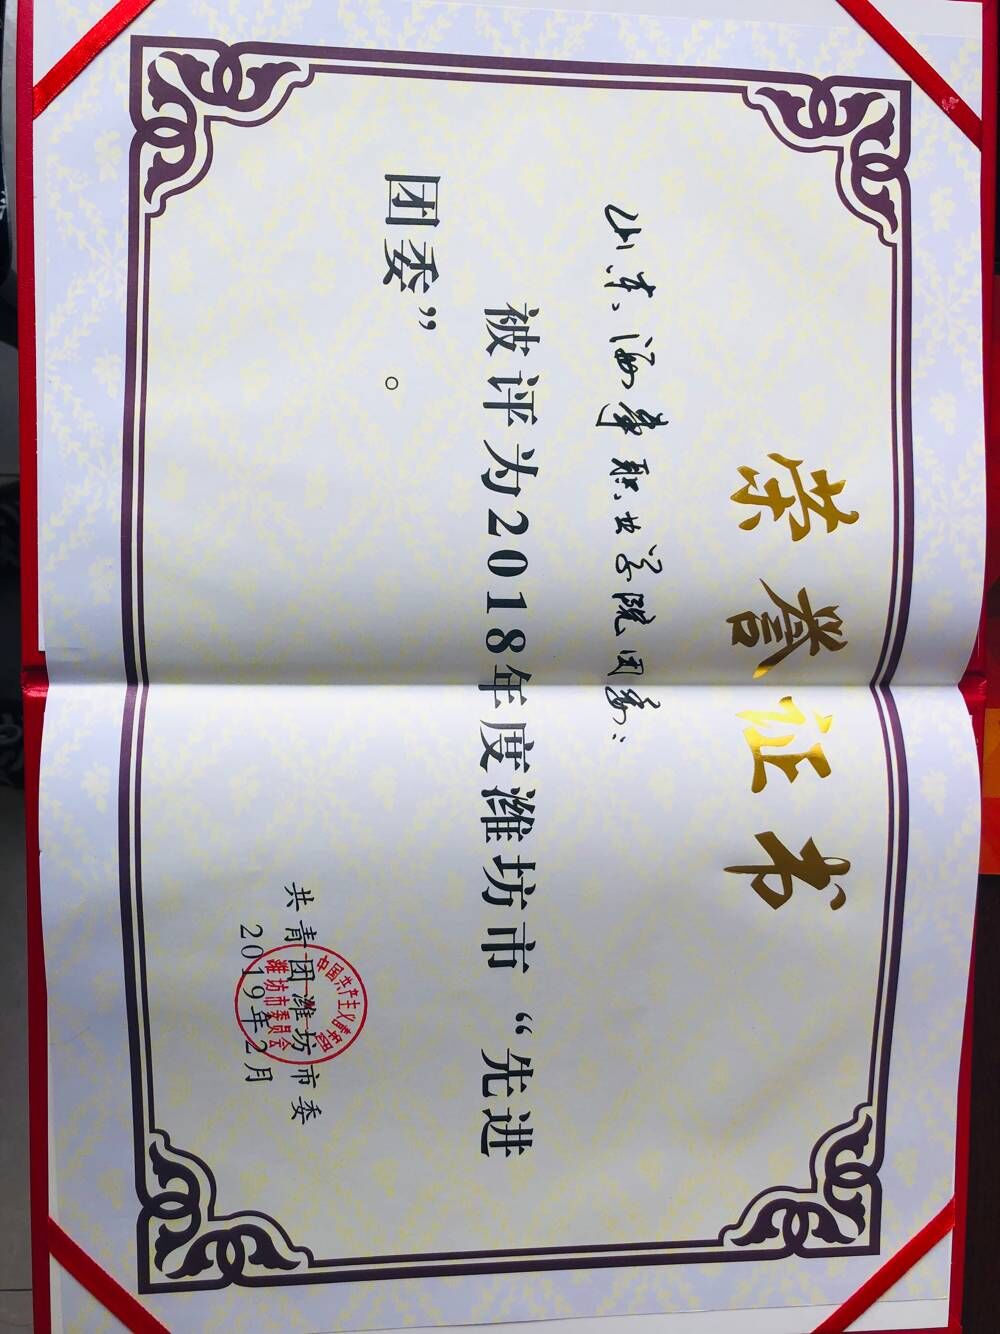 荣誉证书
山东海事职业学院团委：
被评为2018年度潍坊市“先进
团委”。
共青团潍坊市委
2019年2月
中国共产主义青年团
潍坊市委员会